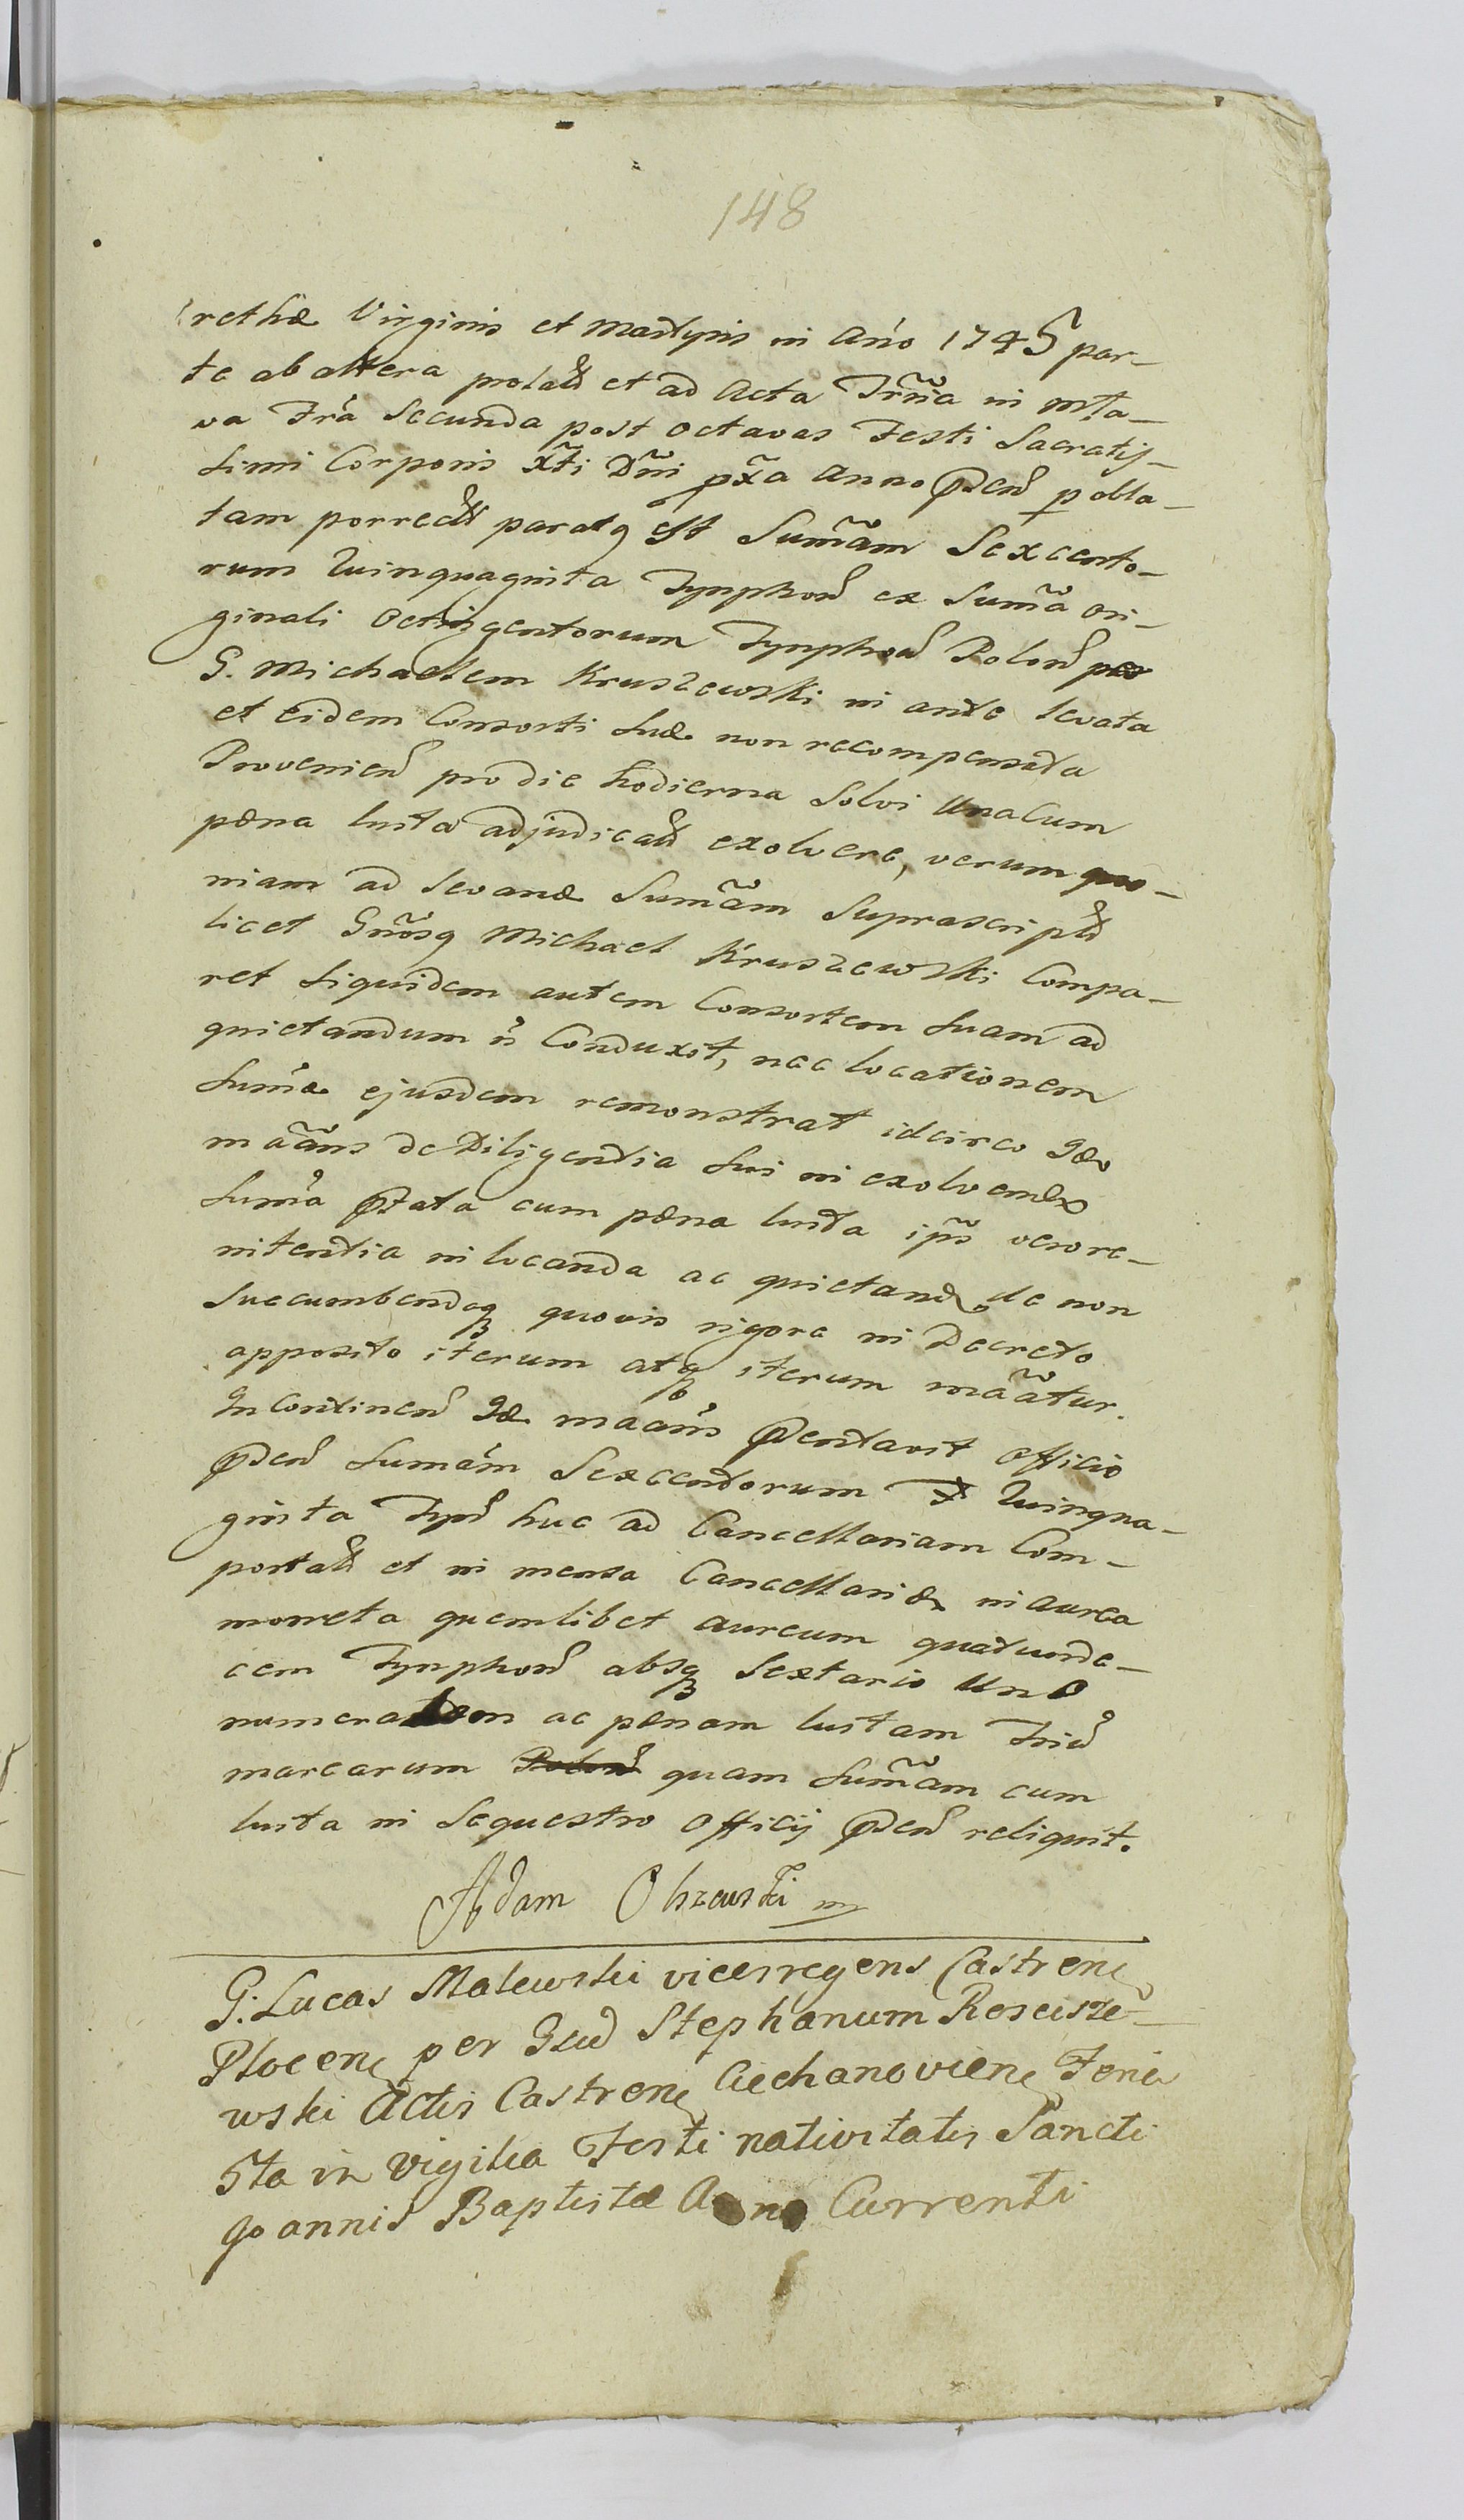 148
rethæ Virginis et Martyris in Anno 1745 par-
te ab altera prolatt et ad Acta Trñia in Mła-
va Fría Secunda post Octavas Festi Sacratis-
simi Corporis Xti Dñi pxa Anno pden p obla-
tam porrectt paratq est Sum̃am Sexcento-
rum Quinquaginta Tynphon ex Sum̃a ori-
ginali Octingentorum Tynphon Polon per
G. Michaelem Kruszewski in ante levata
et eidem Consorti suæ non recompensata
Provenien pro die hodierna Solvi Unacum
pæna luita adjudicatt exolvere, verum quo-
niam ad levand Sum̃am Suprascriptt
licet Gñosq Michael Kruszewski Compa-
ret siquidem autem Consortem suam ad
quietandum ñ Conduxit, nec locationem
Sum̃æ ejusdem remonstrat idcirco Ideo
mãans de Diligentia sui in exolvenda
Sum̃a ptata cum pæna luita ips vero re-
nitentia in locanda ac quietand de non
succumbendoq quovis rigore in Decreto
apposito iterum atq iterum mãatur.
In Continen Id mãans pdentavit Officio
pden Sumam Sexcentorum Quinqua-
ginta Typh huc ad Cancellariam Com-
portatt et in mensa Cancellariæ in aurea
moneta quemlibet aureum quatuorde-
cem Tynphon absq Sextario Uno
numeratam ac pænam luitam Triu
marcarum Polon quam Sum̃am cum
luita in Sequestro Officij pden reliquit.
Adam Olszewski mp
G. Lucas Malewski vicesregens Castren
Plocen per Gend Stephanum Rosciszẽ-
wski Actis Castren Ciechanovien Feria
5ta in Vigilia Festi nativitatis Sancti
Joannis Baptistæ Anno Currenti